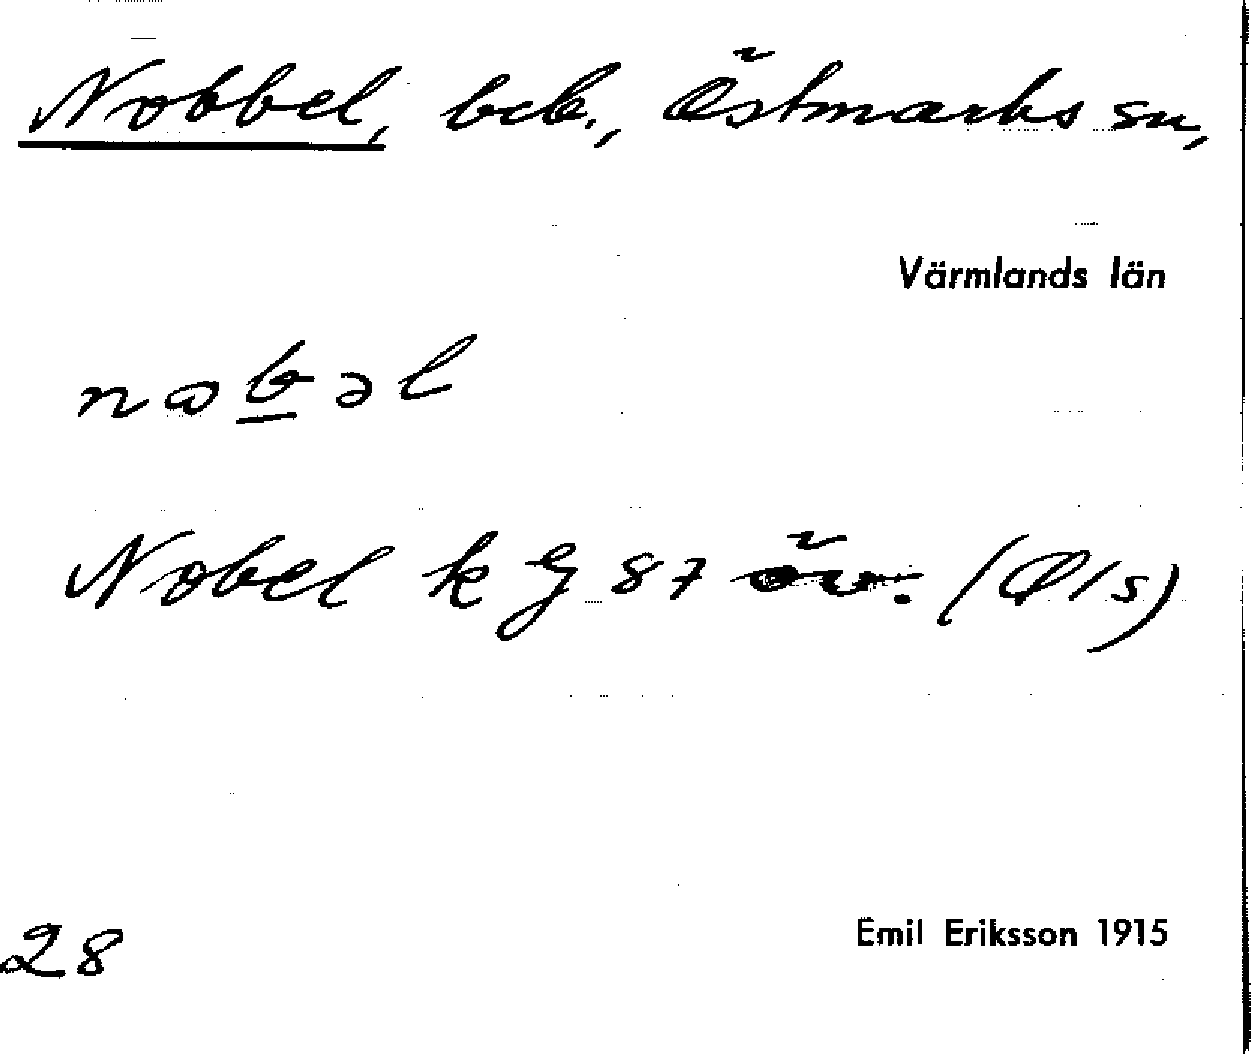 Nobbel, beb., Östmarks sn,
Värmlands län
nɷb̲əl
Nobel k g 87 öv. (Ø/s)
28
Emil Eriksson 1915